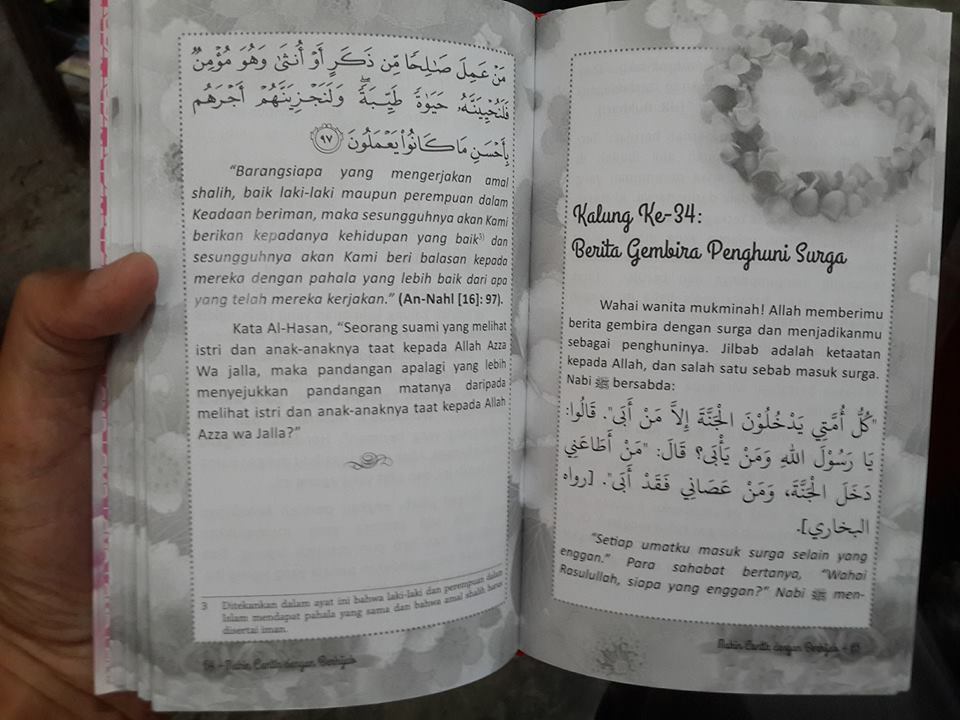 مَنْ عَمِلَ صَٰلِحًا مِّن ذَكَرٍ أَوْ أُنثَىٰ وَهُوَ مُؤْمِنٌ
فَلَنُحْيِيَنَّهُۥ حَيَوٰةً طَيِّبَةً ۖ وَلَنَجْزِيَنَّهُمْ أَجْرَهُم
بِأَحْسَنِ مَا كَانُوا۟ يَعْمَلُونَ ٩٧
"Barangsiapa yang mengerjakan amal
shalih, baik laki-laki maupun perempuan dalam
Keadaan beriman, maka sesungguhnya akan Kami
berikan kepadanya kehidupan yang baik³⁾ dan
sesungguhnya akan Kami beri balasan kepada
mereka dengan pahala yang lebih baik dari apa
yang telah mereka kerjakan." (An-Nahl [16]: 97).
Kata Al-Hasan, "Seorang suami yang melihat
istri dan anak-anaknya taat kepada Allah Azza
Wa jalla, maka pandangan apalagi yang lebih
menyejukkan pandangan matanya daripada
melihat istri dan anak-anaknya taat kepada Allah
Azza wa Jalla?"
3 Ditekankan dalam ayat ini bahwa laki-laki dan perempuan dalam
Islam mendapat pahala yang sama dan bahwa amal shalih harus
disertai iman.
- Makin Cantik dengan Berhijab
Kalung Ke-34:
Berita Gembira Penghuni Surga
Wahai wanita mukminah! Allah memberimu
berita gembira dengan surga dan menjadikanmu
sebagai penghuninya. Jilbab adalah ketaatan
kepada Allah, dan salah satu sebab masuk surga.
Nabi ﷺ bersabda:
"كُلُّ أُمَّتِي يَدْخُلُوْنَ الْجَنَّةَ إِلاَّ مَنْ أَبَى". قَالُوا:
يَا رَسُوْلَ اللهِ وَمَنْ يَأْبَى؟ قَالَ: "مَنْ أَطَاعَنِي
دَخَلَ الْجَنَّةَ، وَمَنْ عَصَانِي فَقَدْ أَبَى". [رواه
البخاري].
"Setiap umatku masuk surga selain yang
enggan." Para sahabat bertanya, "Wahai
Rasulullah, siapa yang enggan?" Nabi ﷺ men-
Makin Cantik dengan Berhijab -